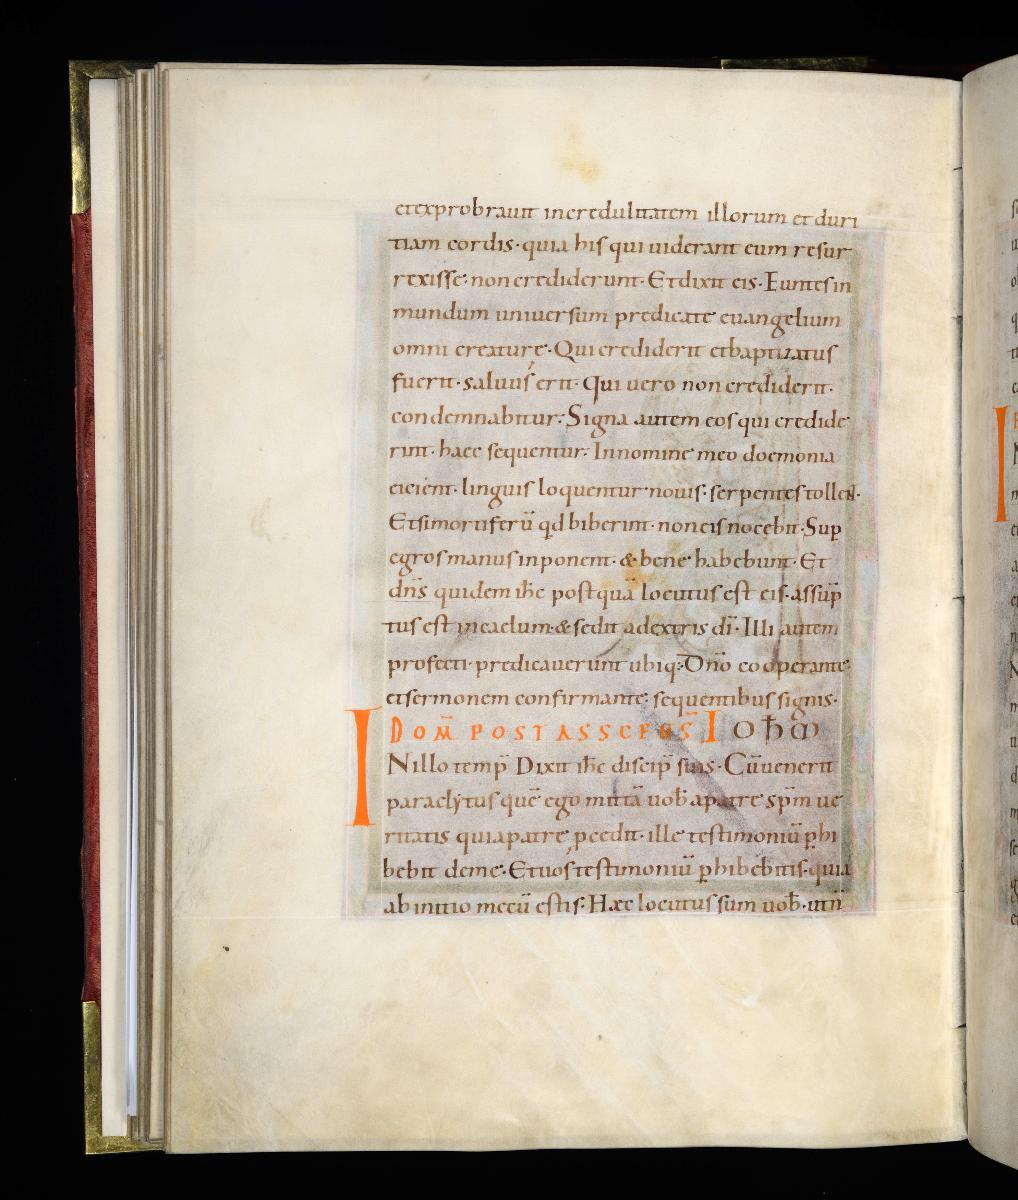 et exprobrauit incredulitatem illorum et duri
tiam cordis· quia his qui uiderant eum resur
rexisse· non crediderunt· Et dixit eis· Euntes in
mundum uniuersum predicate euangelium
omni creature· Qui crediderit et baptizatus
fuerit· saluus erit· Qui uero non crediderit·
condemnabitur· Signa autem eos qui credide
rint· haec sequentur· In nomine meo doemonia
eicient· linguis loquentur nouis· serpentes tollent·
Et si mortiferū qd biberint· non eis nocebit· Sup
egros manus inponent· & bene habebunt· Et
dn̄s quidem ih̄c postquā locutus est eis· assūp
tus est in caelum· & sedit a dextris dī· Illi autem
profecti· predicauerunt ubiq· Dn̄o cooperante·
et sermonem confirmante· sequentibus signis·
DOM̄ POST ASSCENS̄ IOH̄
IN illo temp̄ Dixit ih̄c discip̄ suis· Cū uenerit
paraclytus quē ego mittā uob̄ a patre sp̄m ue
ritatis qui a patre pcedit· ille testimoniū phi
bebit de me· Et uos testimoniū phibebitis· quia
ab initio mecū estis· Haec locutus sum uob̄· ut n̄